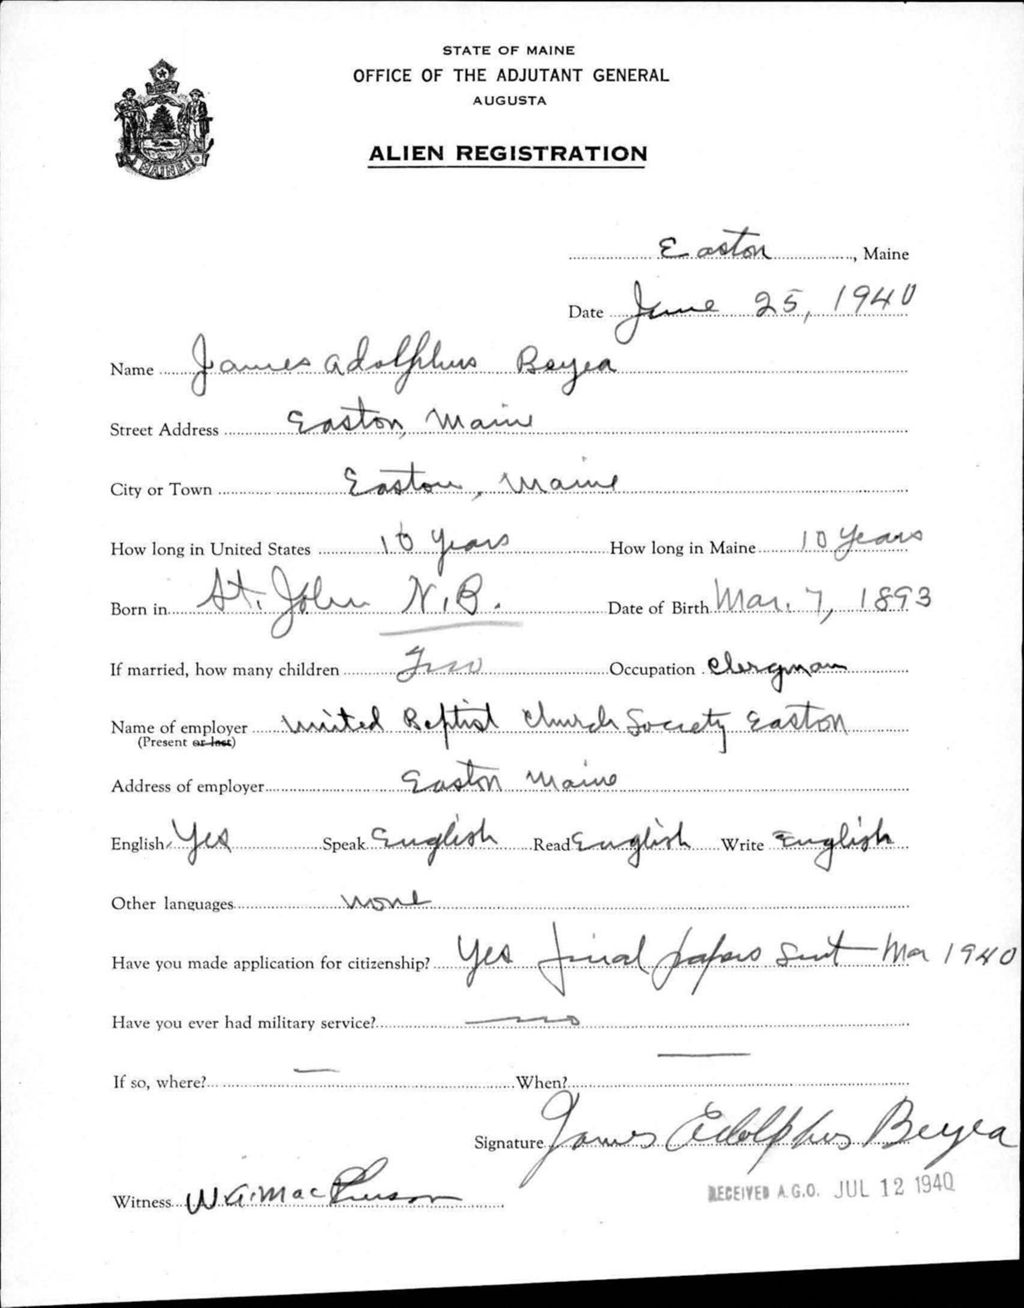 STATE OF MAINE
OFFICE OF THE ADJUTANT GENERAL
AUGUSTA
ALIEN REGISTRATION
MAINE
Easton, Maine
Date June 25, 1940
Name James Adolphus Beyea
Street Address Easton, Maine
City or Town Easton, Maine
How long in United States 10 years How long in Maine 10 years
Born in St. John N.B. Date of Birth Mar. 7, 1893
If married, how many children Two Occupation Clergman
Name of employer United Baptist Church Society Easton
(Present or last)
Address of employer Easton Maine
English Yes Speak English Read English Write English
Other languages none
Have you made application for citizenship? Yes final papers sent Mar 1940
Have you ever had military service? no
If so, where? — When? —
Signature James Adolphus Beyea
Witness W.A. MacPherson
RECEIVED A.G.O. JUL 12 1940